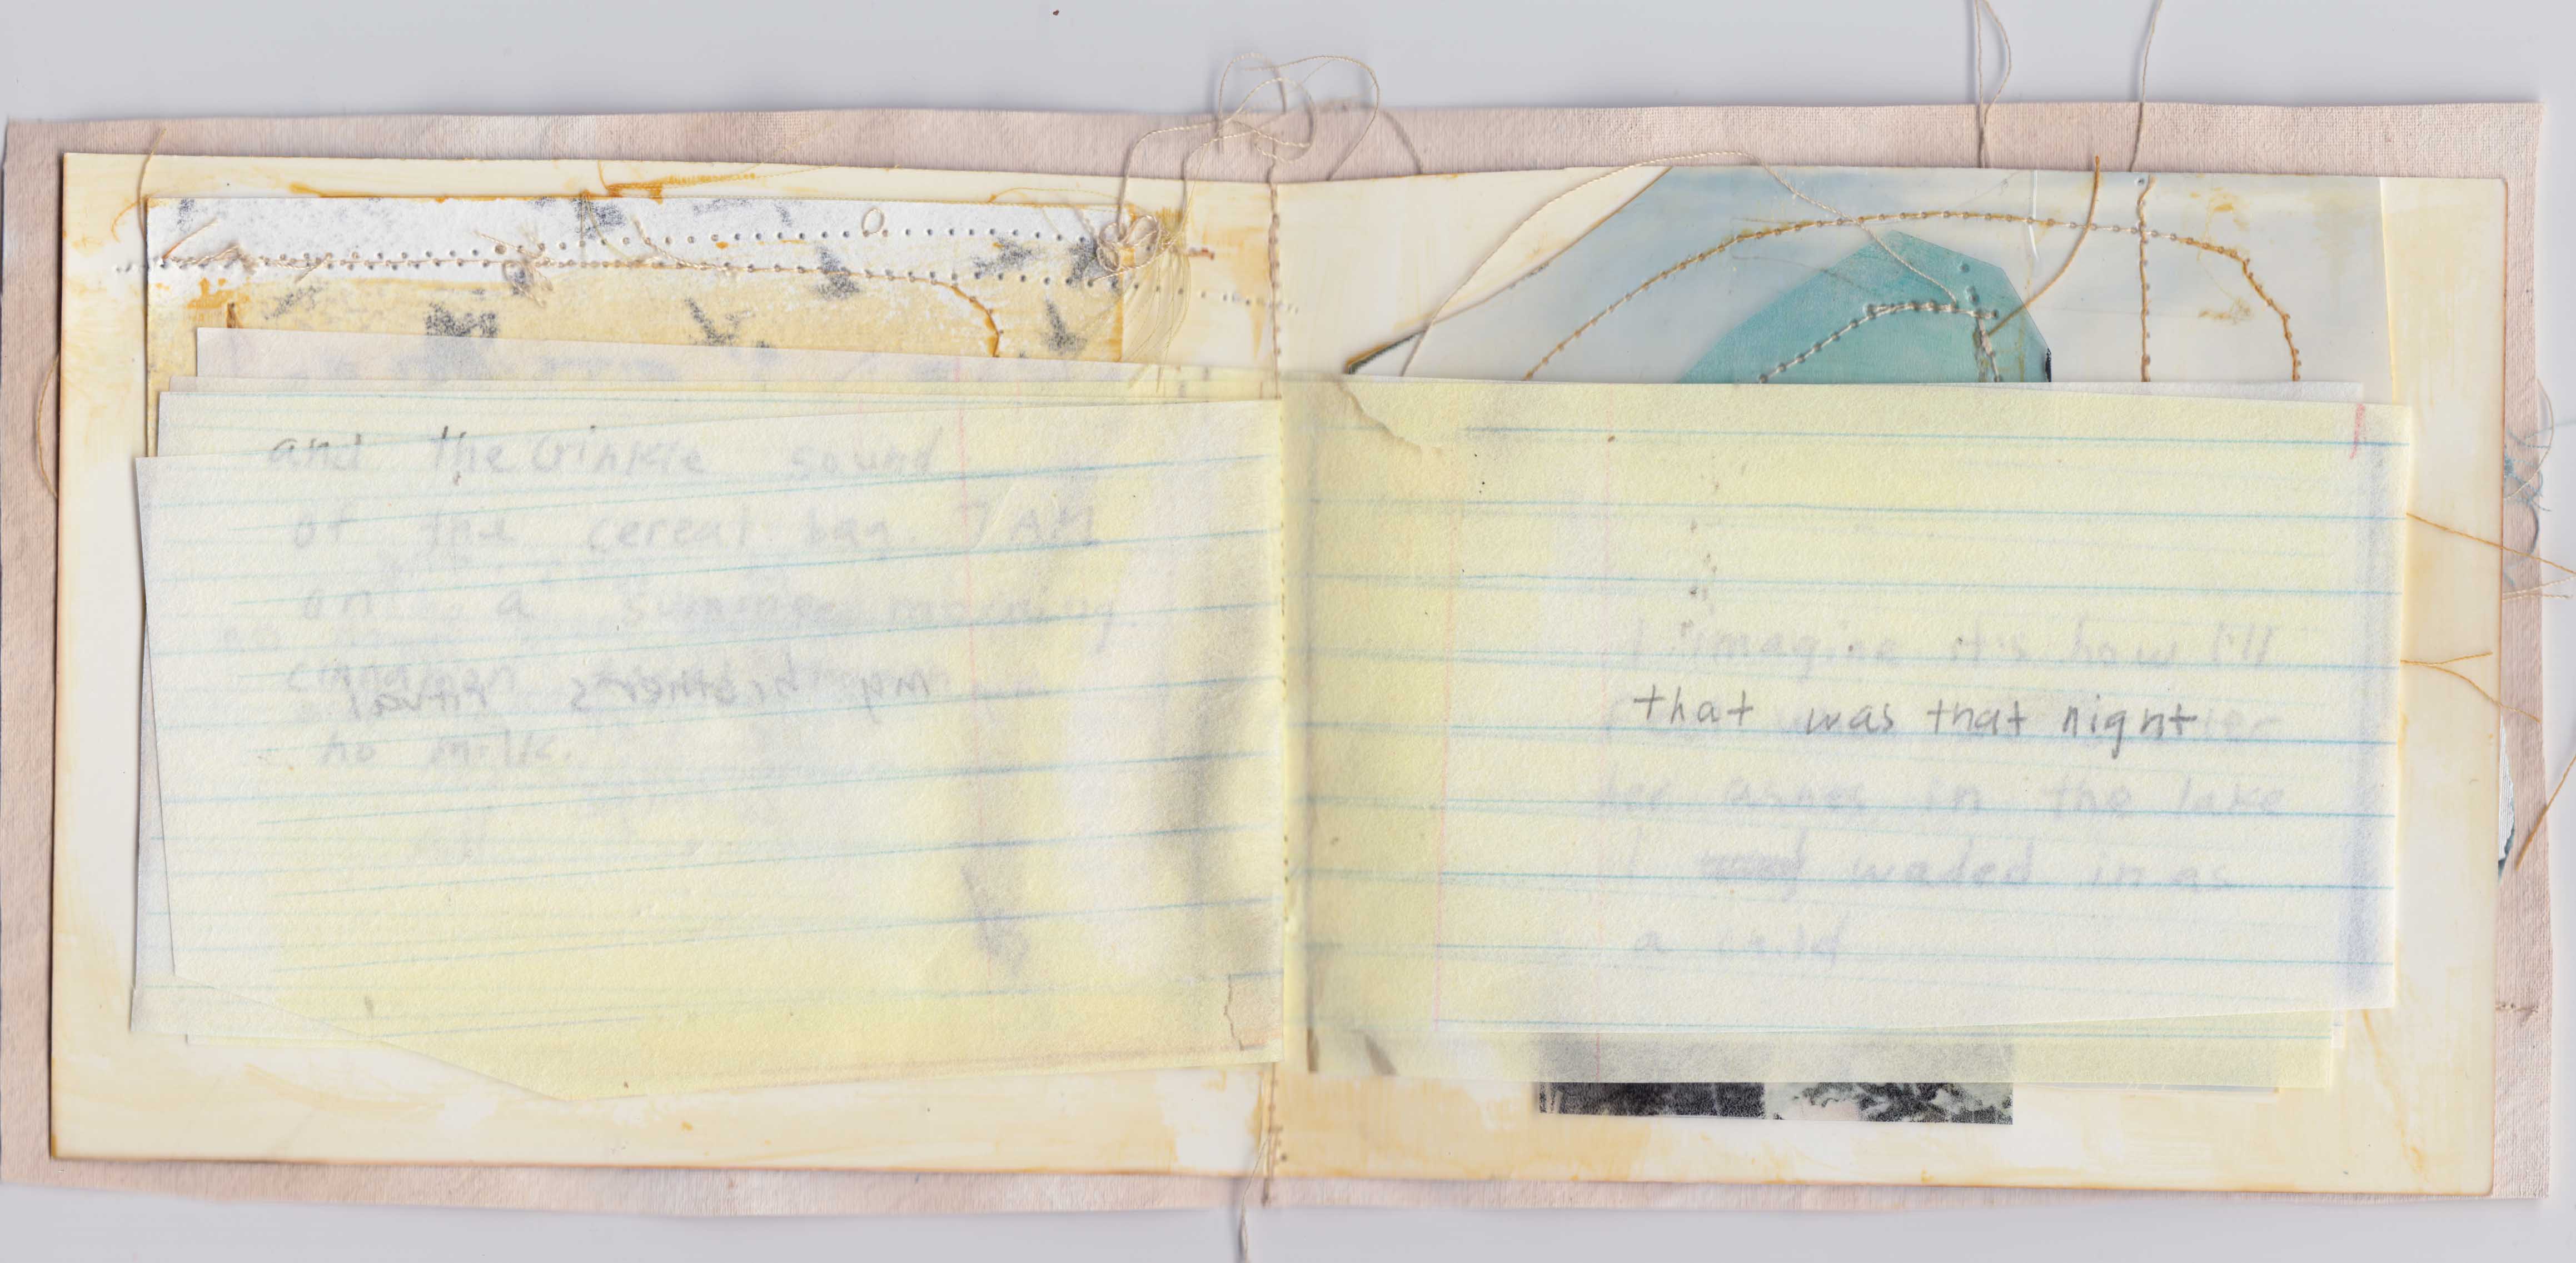 and the Crinkle sound
of the cereal bag. 7 AM
on a summer morning.
cinnamon
my brother's ritual
no milk.
I imagine it's how I'll
that was that night
her ashes in the lake
I waded in as
a